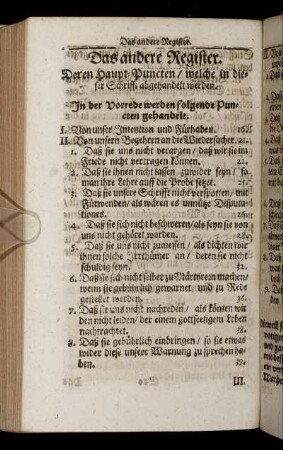 Das andere Register.
Das andere Register.
Deren Haupt-Puncten / welche in die-
ser Schrifft abgehandelt werden.
In der Vorrede werden folgende Pun-
cten gehandelt.
I. Von unser Intention und Fürhaben. 16.
II. Von unsern Begehren an die Widersacher. 21.
1. Daß sie uns nicht verargen / daß wir sie im
Friede nicht vertragen können. 22.
2. Daß sie ihnen nicht lassen zuwider seyn / so
man ihre Lehre auff die Probe setzt. 25.
3. Daß sie unsere Schrifft nicht verspotten / mit
Fürwenden / als wären es unnütze Disputa-
tiones. 26.
4. Daß sie sich nicht beschweren / als seyn sie von
uns nicht gehört worden. 28.
5. Daß sie uns nicht zumessen / als dichten wir
ihnen solche Irrthümer an / deren sie nicht
schuldig seyn. 32.
6. Daß sie sich nicht selber zu Märtyrern machen
wenn sie gebührlich gewarnet und zu Rede
gestellet werden. 36.
7. Daß sie uns nicht nachreden / als könten wir
den nicht leiden / der einem gottseeligem Leben
nachtrachtet. 38.
8. Daß sie gebührlich einbringen / so sie etwas
wider diese unsere Warnung zu sprechen ha-
ben. 39.
III.